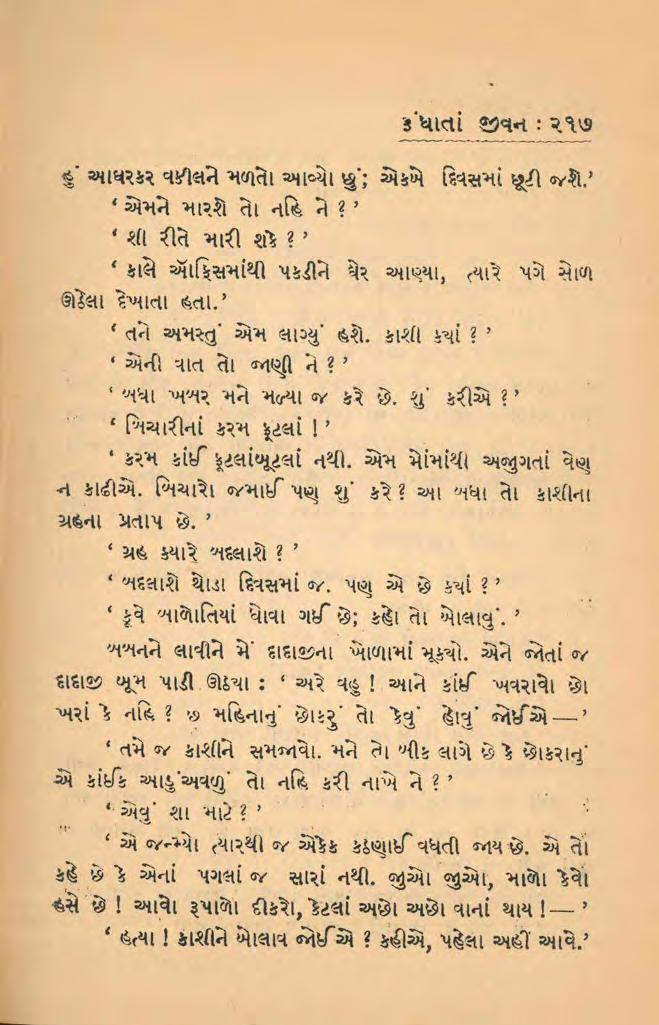 રૂંધાતાં જીવન : ૨૧૭
હું આધરકર વકીલને મળતો આવ્યો છું; એકબે દિવસમાં છૂટી જશે.’
‘ એમને મારશે તો નહિ ને ? ’
‘ શી રીતે મારી શકે ? ’
‘ કાલે ઑફિસમાંથી પકડીને ઘેર આણ્યા, ત્યારે પગે સોળ
ઊઠેલા દેખાતા હતા.’
‘ તને અમસ્તું એમ લાગ્યું હશે. કાશી ક્યાં ? ’
‘ એની વાત તો જાણી ને ? ’
‘ બધા ખબર મને મળ્યા જ કરે છે. શું કરીએ ? ’
‘ બિચારીનાં કરમ ફૂટલાં ! ’
‘ કરમ કાંઈ ફૂટલાંબૂટલાં નથી. એમ મોંમાંથી અજુગતાં વેણ
ન કાઢીએ. બિચારો જમાઈ પણ શું કરે ? આ બધા તો કાશીના
ગ્રહના પ્રતાપ છે. ’
‘ ગ્રહ ક્યારે બદલાશે ? ’
‘ બદલાશે થોડા દિવસમાં જ. પણ એ છે ક્યાં ? ’
‘ કૂવે બાળોતિયાં ધોવા ગઈ છે; કહો તો બોલાવું. ’
બબનને લાવીને મેં દાદાજીના ખોળામાં મૂક્યો. એને જોતાં જ
દાદાજી બૂમ પાડી ઊઠ્યા : ‘ અરે વહુ ! આને કાંઈ ખવરાવો છો
ખરાં કે નહિ ? છ મહિનાનું છોકરું તો કેવું હોવું જોઈએ—’
‘ તમે જ કાશીને સમજાવો. મને તો બીક લાગે છે કે છોકરાનું
એ કાંઈક આડુંઅવળું તો નહિ કરી નાખે ને ? ’
‘ એવું શા માટે ? ’
‘ એ જન્મ્યો ત્યારથી જ એકેક કઠણાઈ વધતી જાય છે. એ તો
કહે છે કે એનાં પગલાં જ સારાં નથી. જુઓ જુઓ, માળો કેવો
હસે છે ! આવો રૂપાળો દીકરો, કેટલાં અછો અછો વાનાં થાય !—’
‘ હત્યા ! કાશીને બોલાવ જોઈએ ? કહીએ, પહેલા અહીં આવે.’